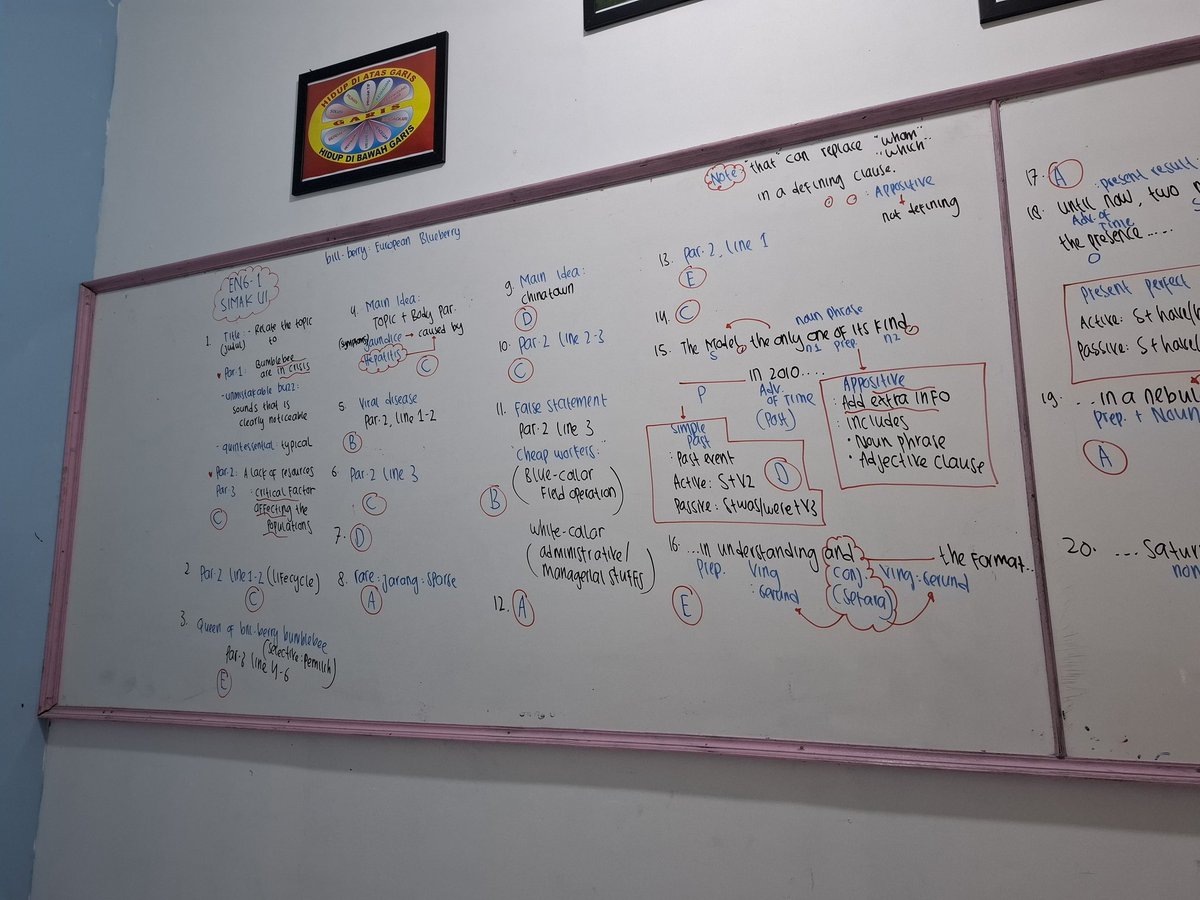 HIDUP DI ATAS GARIS
GARIS
HIDUP DI BAWAH GARIS
Note: "that" can replace "whom"
"which"
in a defining clause.
: Appositive
not defining
bill-berry: European Blueberry
ENG-1
SIMAK UI
1. Title: - Relate the topic
(judul) to
Par.1: Bumblebee
are in crisis
- unmistakable buzz:
sounds that is
clearly noticeable
- quintessential: typical
Par.2: A lack of resources
Par 3 : Critical Factor
affecting the
populations
C
2 Par.2 line 1-2 (lifecycle)
C
3. Queen of bill-berry bumblebee
(selective: pemilih)
Par.3 line 4-6
E
4. Main Idea:
Topic + Body Par.
(symptoms) jaundice → caused by
Hepatitis
C
5. Viral disease
Par.2, line 1-2
B
6. Par.2 line 3
C
7. D
8. rare: jarang: sparse
A
9. Main Idea:
Chinatown
D
10. Par.2 line 2-3
C
11. False statement
Par.2 line 3
"Cheap workers":
(Blue-color
Field operation)
B
White-color
(administrative/
managerial stuffs)
12. A
13. Par.2, line 1
E
14. C
noun phrase
15. The Model, the only one of its kind,
S n1 prep. n2
in 2010.....
P Adv.
of Time
(Past)
Simple
past
: Past event
Active: S+V2
Passive: S+was/were+V3
D
Appositive
: Add extra info
: includes
• Noun phrase
• Adjective Clause
16. ...in understanding and the format..
Prep. Ving conj. Ving: Gerund
: Gerund (setara)
E
17. A : Present result
18. Until now, two
Adv. of
Time
the presence.....
O
Present perfect
Active: S+have/
Passive: S+have/
19. ... in a nebul
Prep. + Noun
A
20. ... Satur